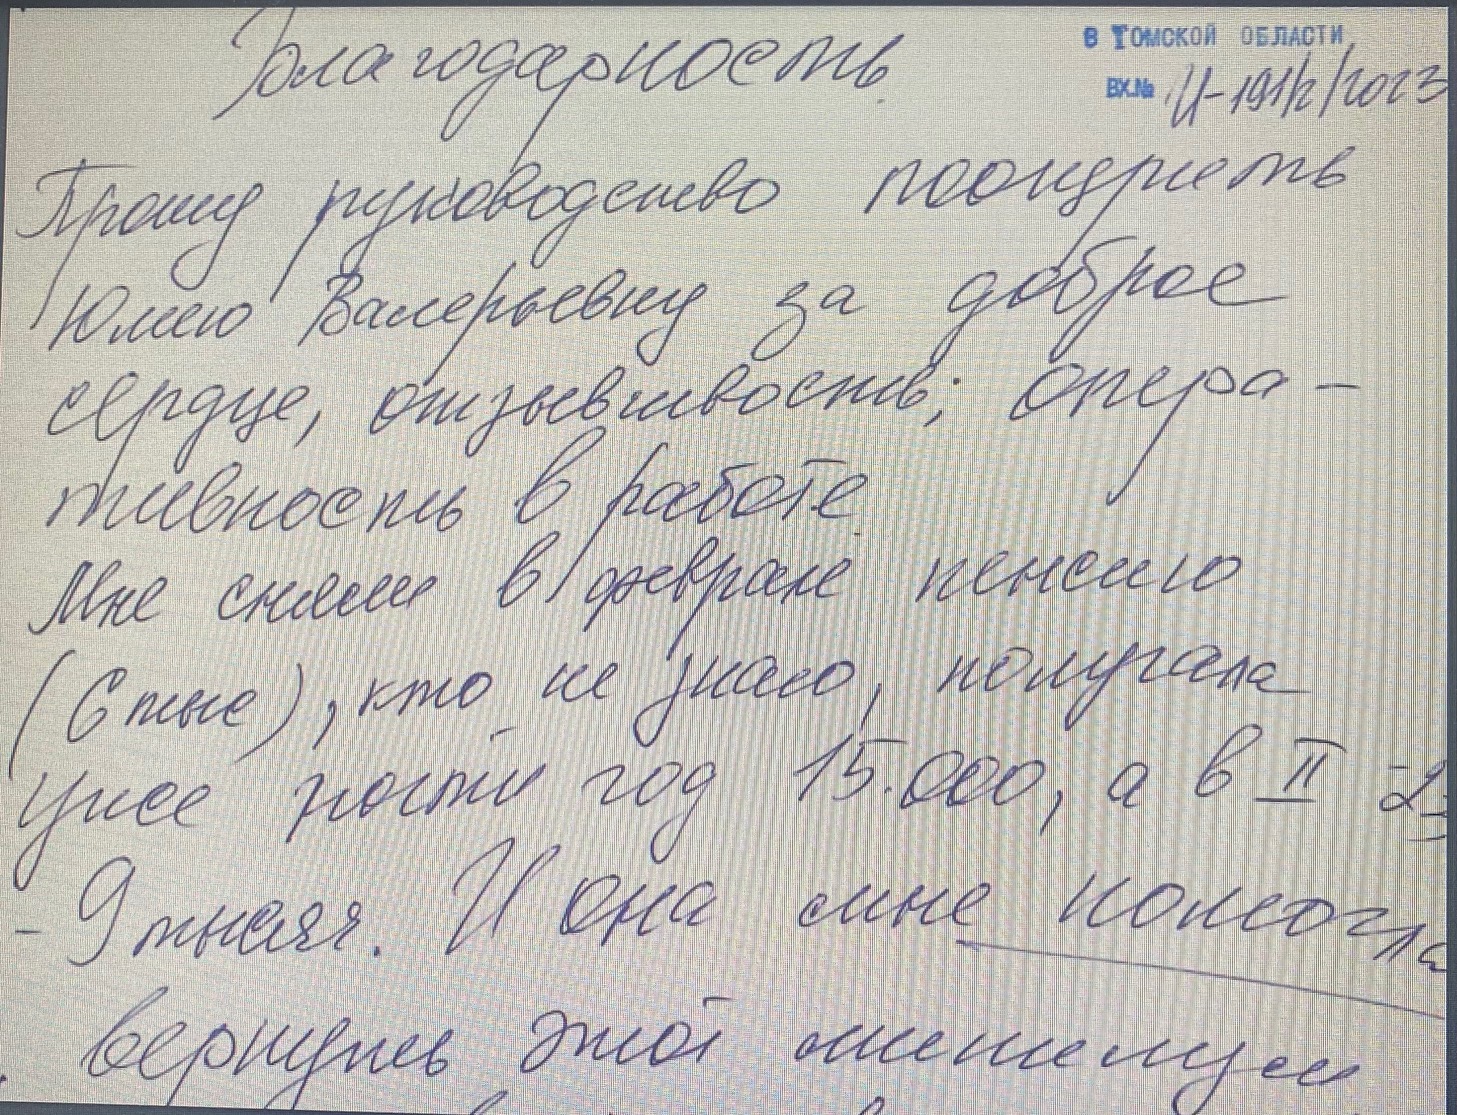 Благодарность
В ТОМСКОЙ ОБЛАСТИ
ВХ.№ И-191/2/2023
Прошу руководство поощрить
Юлию Валерьевну за доброе
сердце, отзывчивость, опера-
тивность в работе.
Мне сняли в феврале пенсию
(6 тыс), кто не знаю, получала
уже почти год 15.000, а в II
- 9 тысяч. И она мне помогла
вернуть этот минимум